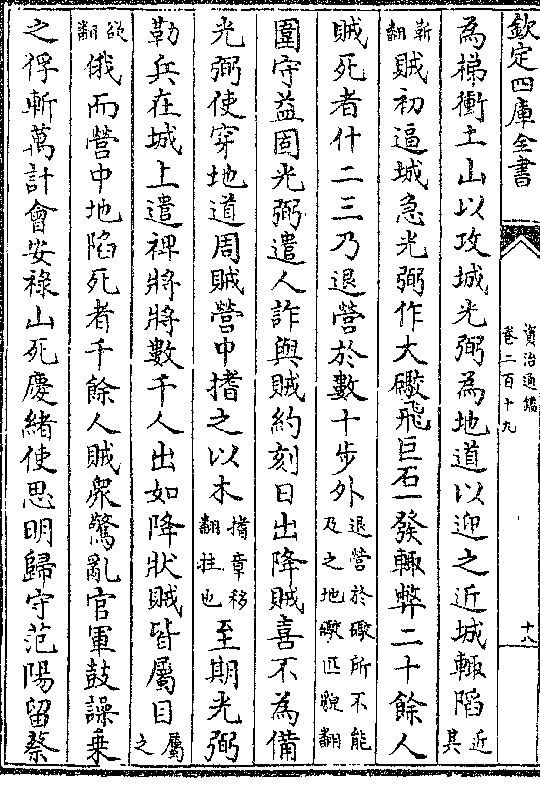 欽定四庫全書
資治通鑑
卷二百十九
十八
為梯衝土山以攻城光弼為地道以迎之近城輒陷近其
靳翻賊初逼城急光弼作大礮飛巨石一發輒斃二十餘人
賊死者什二三乃退營於數十步外退營於礮所不能及之地礮匹貌翻
圍守益固光弼遣人詐與賊約刻日出降賊喜不為備
光弼使穿地道周賊營中搘之以木搘章移翻拄也至期光弼
勒兵在城上遣裨將將數千人出如降狀賊皆屬目屬之
欲翻俄而營中地陷死者千餘人賊衆驚亂官軍鼓譟乗
之俘斬萬計會安祿山死慶緒使思明歸守范陽留蔡